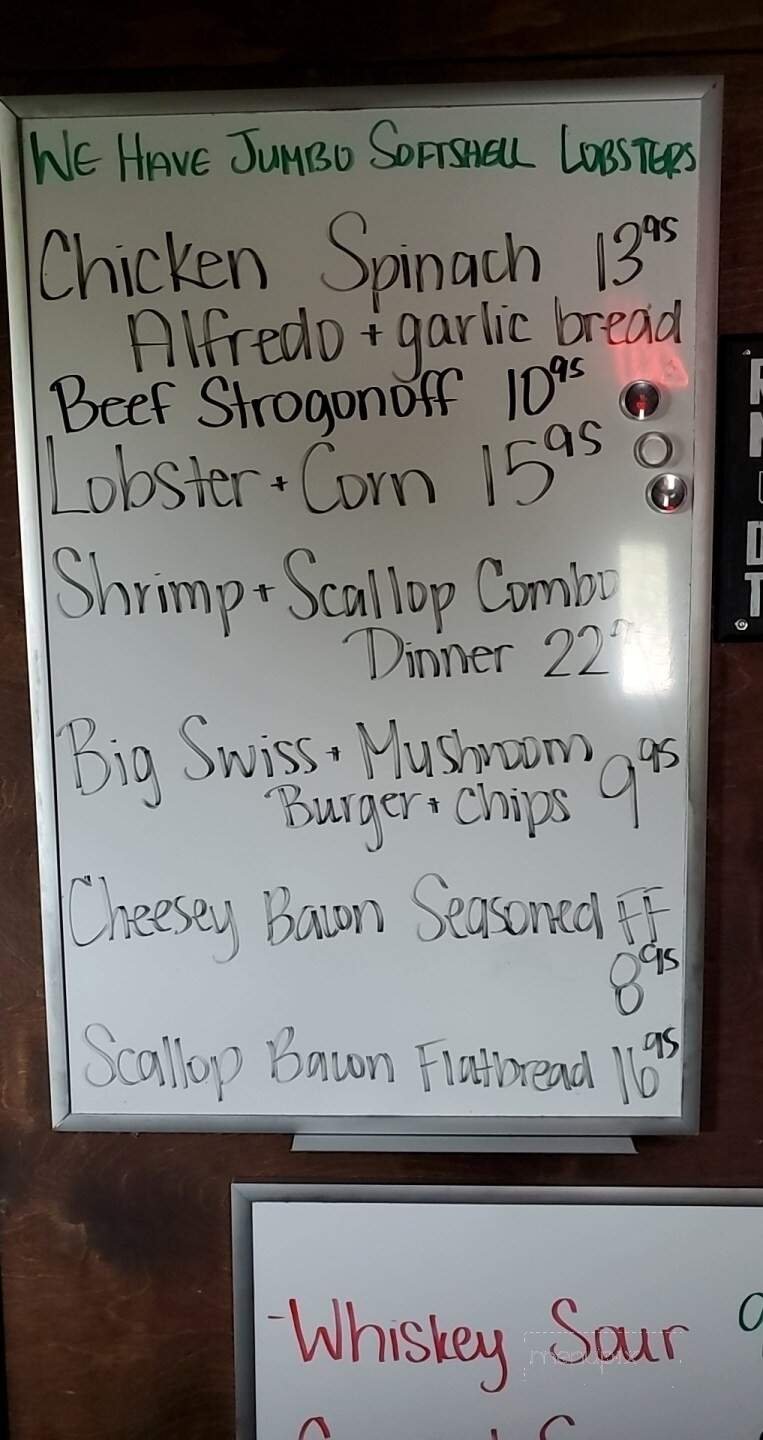 WE HAVE JUMBO SOFTSHELL LOBSTERS
Chicken Spinach 13 95
Alfredo + garlic bread
Beef Strogonoff 10 95
Lobster + Corn 15 95
Shrimp + Scallop Combo
Dinner 22
Big Swiss + Mushroom
Burger + Chips 9 95
Cheesey Bacon Seasoned FF
8 95
Scallop Bacon Flatbread 16 95
-Whiskey Sour
menupix